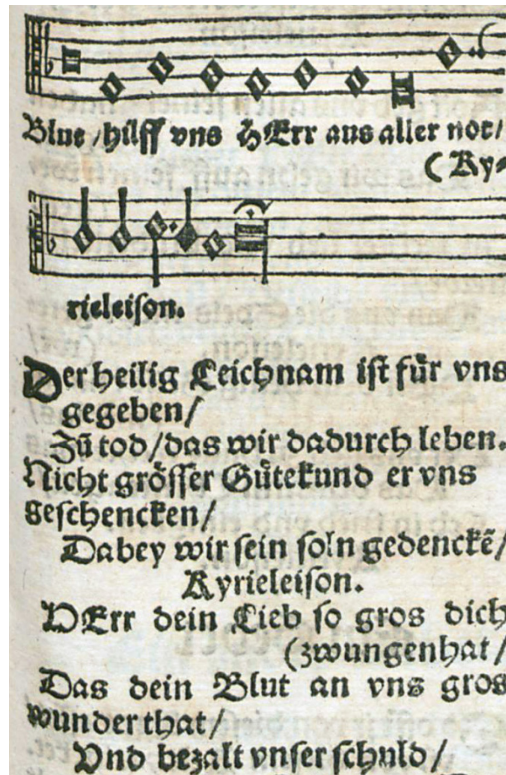 Blut / hilff vns HErr aus aller not /
( Ky⸗
rieleison.
Der heilig Leichnam ist für vns
gegeben /
Zů tod / das wir dadurch leben.
Nicht grösser Gůte kund er vns
geschencken /
Dabey wir sein soln gedenckẽ /
Kyrieleison.
HErr dein Lieb so gros dich
(zwungen hat /
Das dein Blut an vns gros
wunder that /
Vnd bezalt vnser schuld /